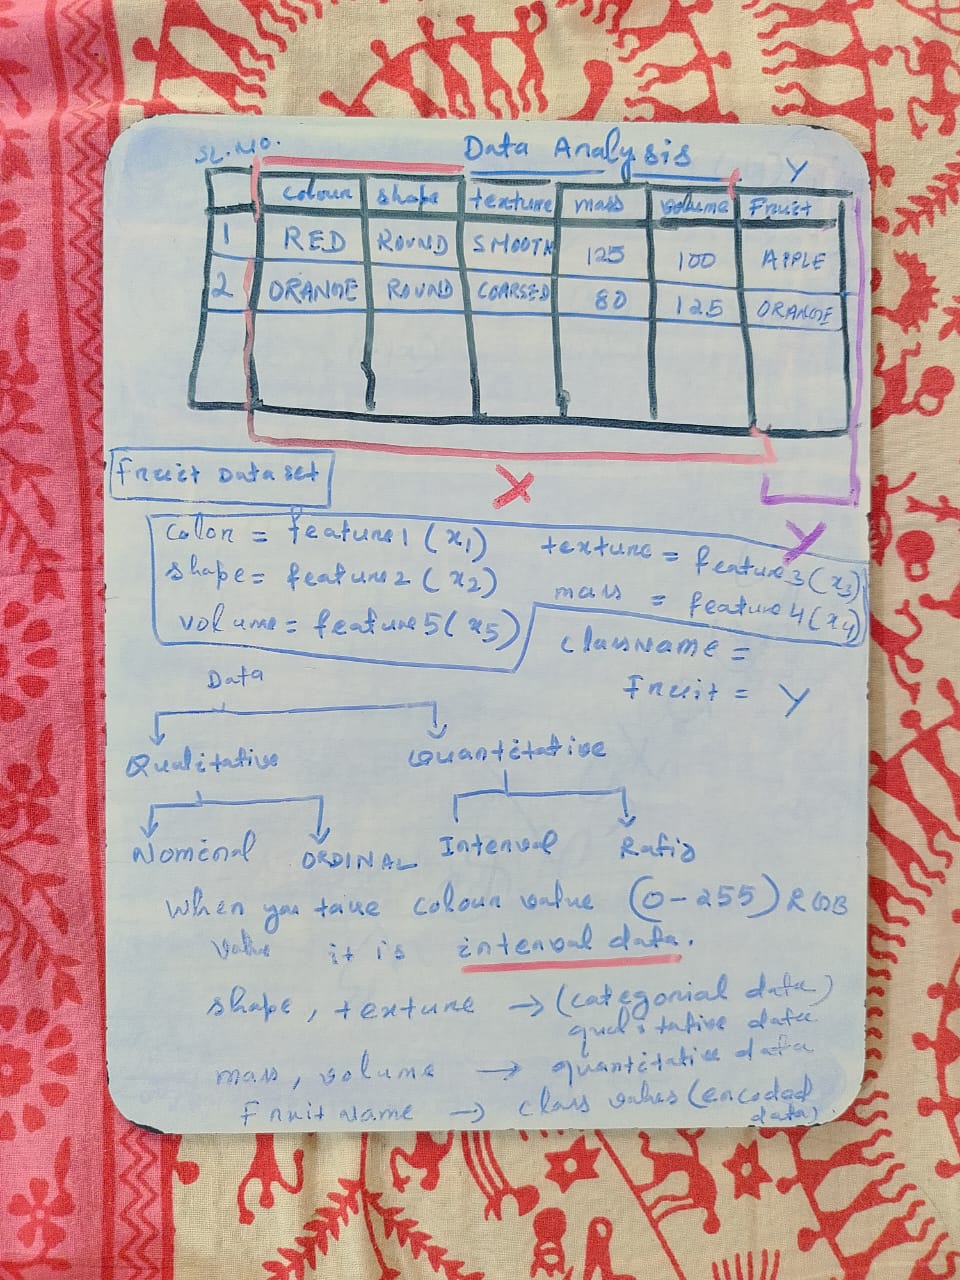 SL.NO. Data Analysis Y
colour shape texture mass volume Fruit
1 RED ROUND SMOOTH 125 100 APPLE
2 ORANGE ROUND COARSED 80 125 ORANGE
X
Fruit Dataset
Y
color = feature1 (x1) texture = feature3 (x3)
shape = feature2 (x2) mass = feature4 (x4)
volume = feature5 (x5)
className =
Fruit = Y
Data
Qualitative Quantitative
Nominal ORDINAL Interval Ratio
When you take colour value (0-255) RGB
value it is interval data.
shape, texture → (categorial data)
qualitative data
mass, volume → quantitative data
Fruit Name → class values (encoded
data).